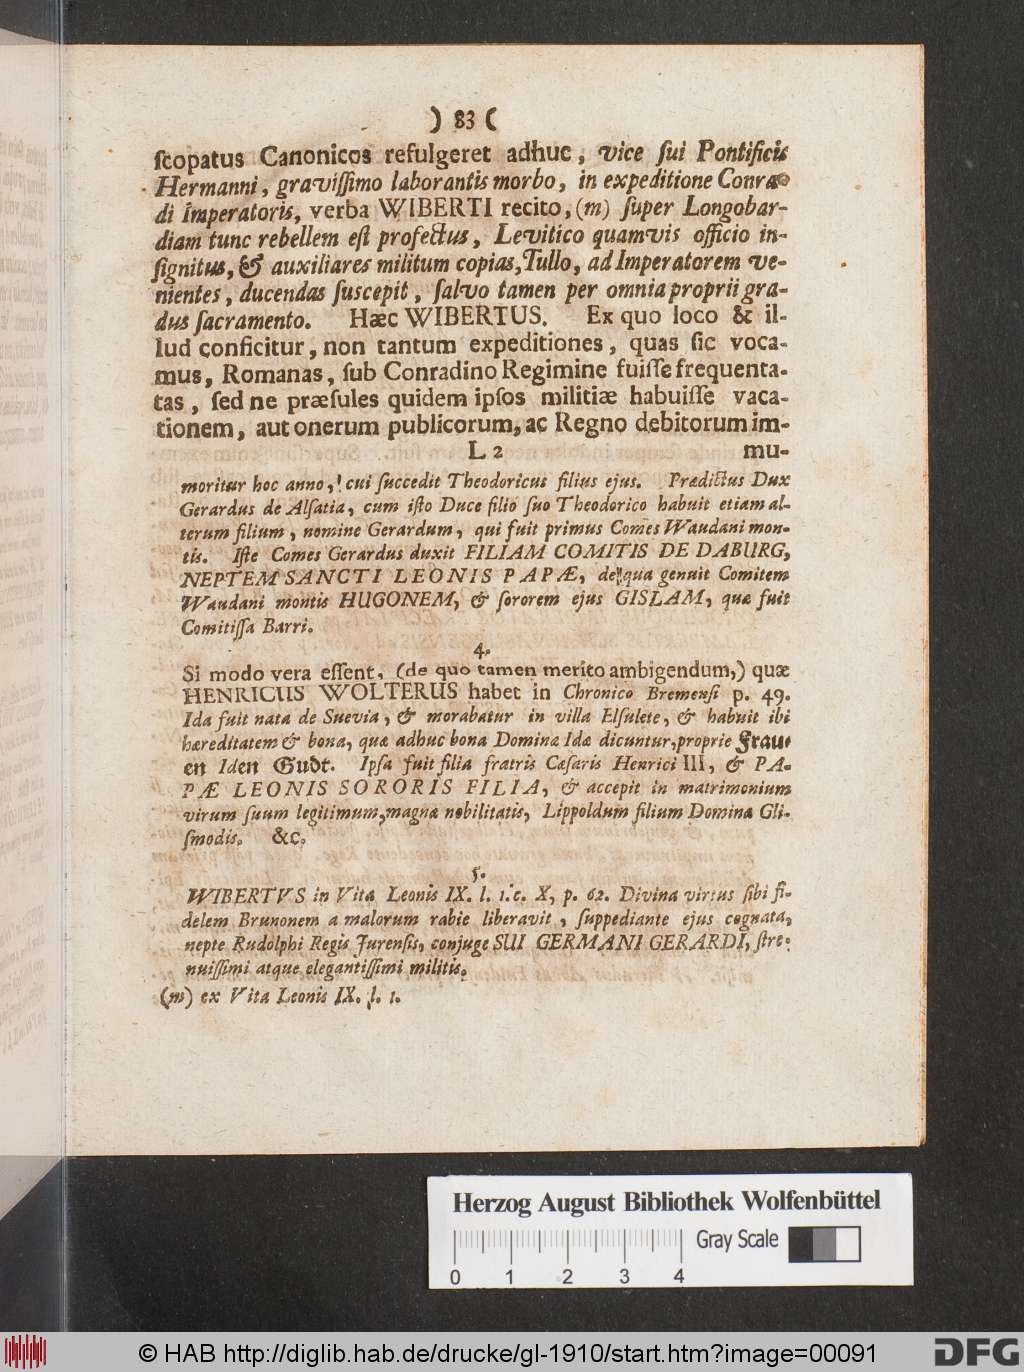 ) 83 (
ſcopatus Canonicos refulgeret adhuc, vice ſui Pontificis
Hermanni, graviſſimo laborantis morbo, in expeditione Conra-
di Imperatoris, verba WIBERTI recito, (m) ſuper Longobar-
diam tunc rebellem eſt profectus, Levitico quamvis officio in-
ſignitus, & auxiliares militum copias, Tullo, ad Imperatorem ve-
nientes, ducendas ſuscepit, ſalvo tamen per omnia proprii gra-
dus ſacramento. Hæc WIBERTUS. Ex quo loco & il-
lud conficitur, non tantum expeditiones, quas ſic voca-
mus, Romanas, ſub Conradino Regimine fuiſſe frequenta-
tas, ſed ne præſules quidem ipſos militiæ habuiſſe vaca-
tionem, aut onerum publicorum, ac Regno debitorum im-
L 2 mu-
moritur hoc anno, cui ſuccedit Theodoricus filius ejus. Prædictus Dux
Gerardus de Alſatia, cum iſto Duce filio ſuo Theodorico habuit etiam al-
terum filium, nomine Gerardum, qui fuit primus Comes Waudani mon-
tis. Iſte Comes Gerardus duxit FILIAM COMITIS DE DABURG,
NEPTEM SANCTI LEONIS PAPÆ, de qua genuit Comitem
Waudani montis HUGONEM, & ſororem ejus GISLAM, quæ fuit
Comitiſſa Barri.
4.
Si modo vera eſſent, (de quo tamen merito ambigendum,) quæ
HENRICUS WOLTERUS habet in Chronico Bremenſi p. 49.
Ida fuit nata de Suevia, & morabatur in villa Elſulete, & habuit ibi
hæreditatem & bona, quæ adhuc bona Dominæ Idæ dicuntur, proprie Frau-
en Iden Gudt. Ipſa fuit filia fratris Cæſaris Henrici III, & PA-
PÆ LEONIS SORORIS FILIA, & accepit in matrimonium
virum ſuum legitimum, magnæ nobilitatis, Lippoldum filium Dominæ Gli-
ſmodis. &c.
5.
WIBERTVS in Vita Leonis IX. l. 1. c. X, p. 62. Divina virtus ſibi fi-
delem Brunonem a malorum rabie liberavit, ſuppediante ejus cognata,
nepte Rudolphi Regis Jurenſis, conjuge SUI GERMANI GERARDI, ſtre-
nuiſſimi atque elegantiſſimi militis.
(m) ex Vita Leonis IX. l. 1.
Herzog August Bibliothek Wolfenbüttel
Gray Scale
0 1 2 3 4
© HAB http://diglib.hab.de/drucke/gl-1910/start.htm?image=00091
DFG